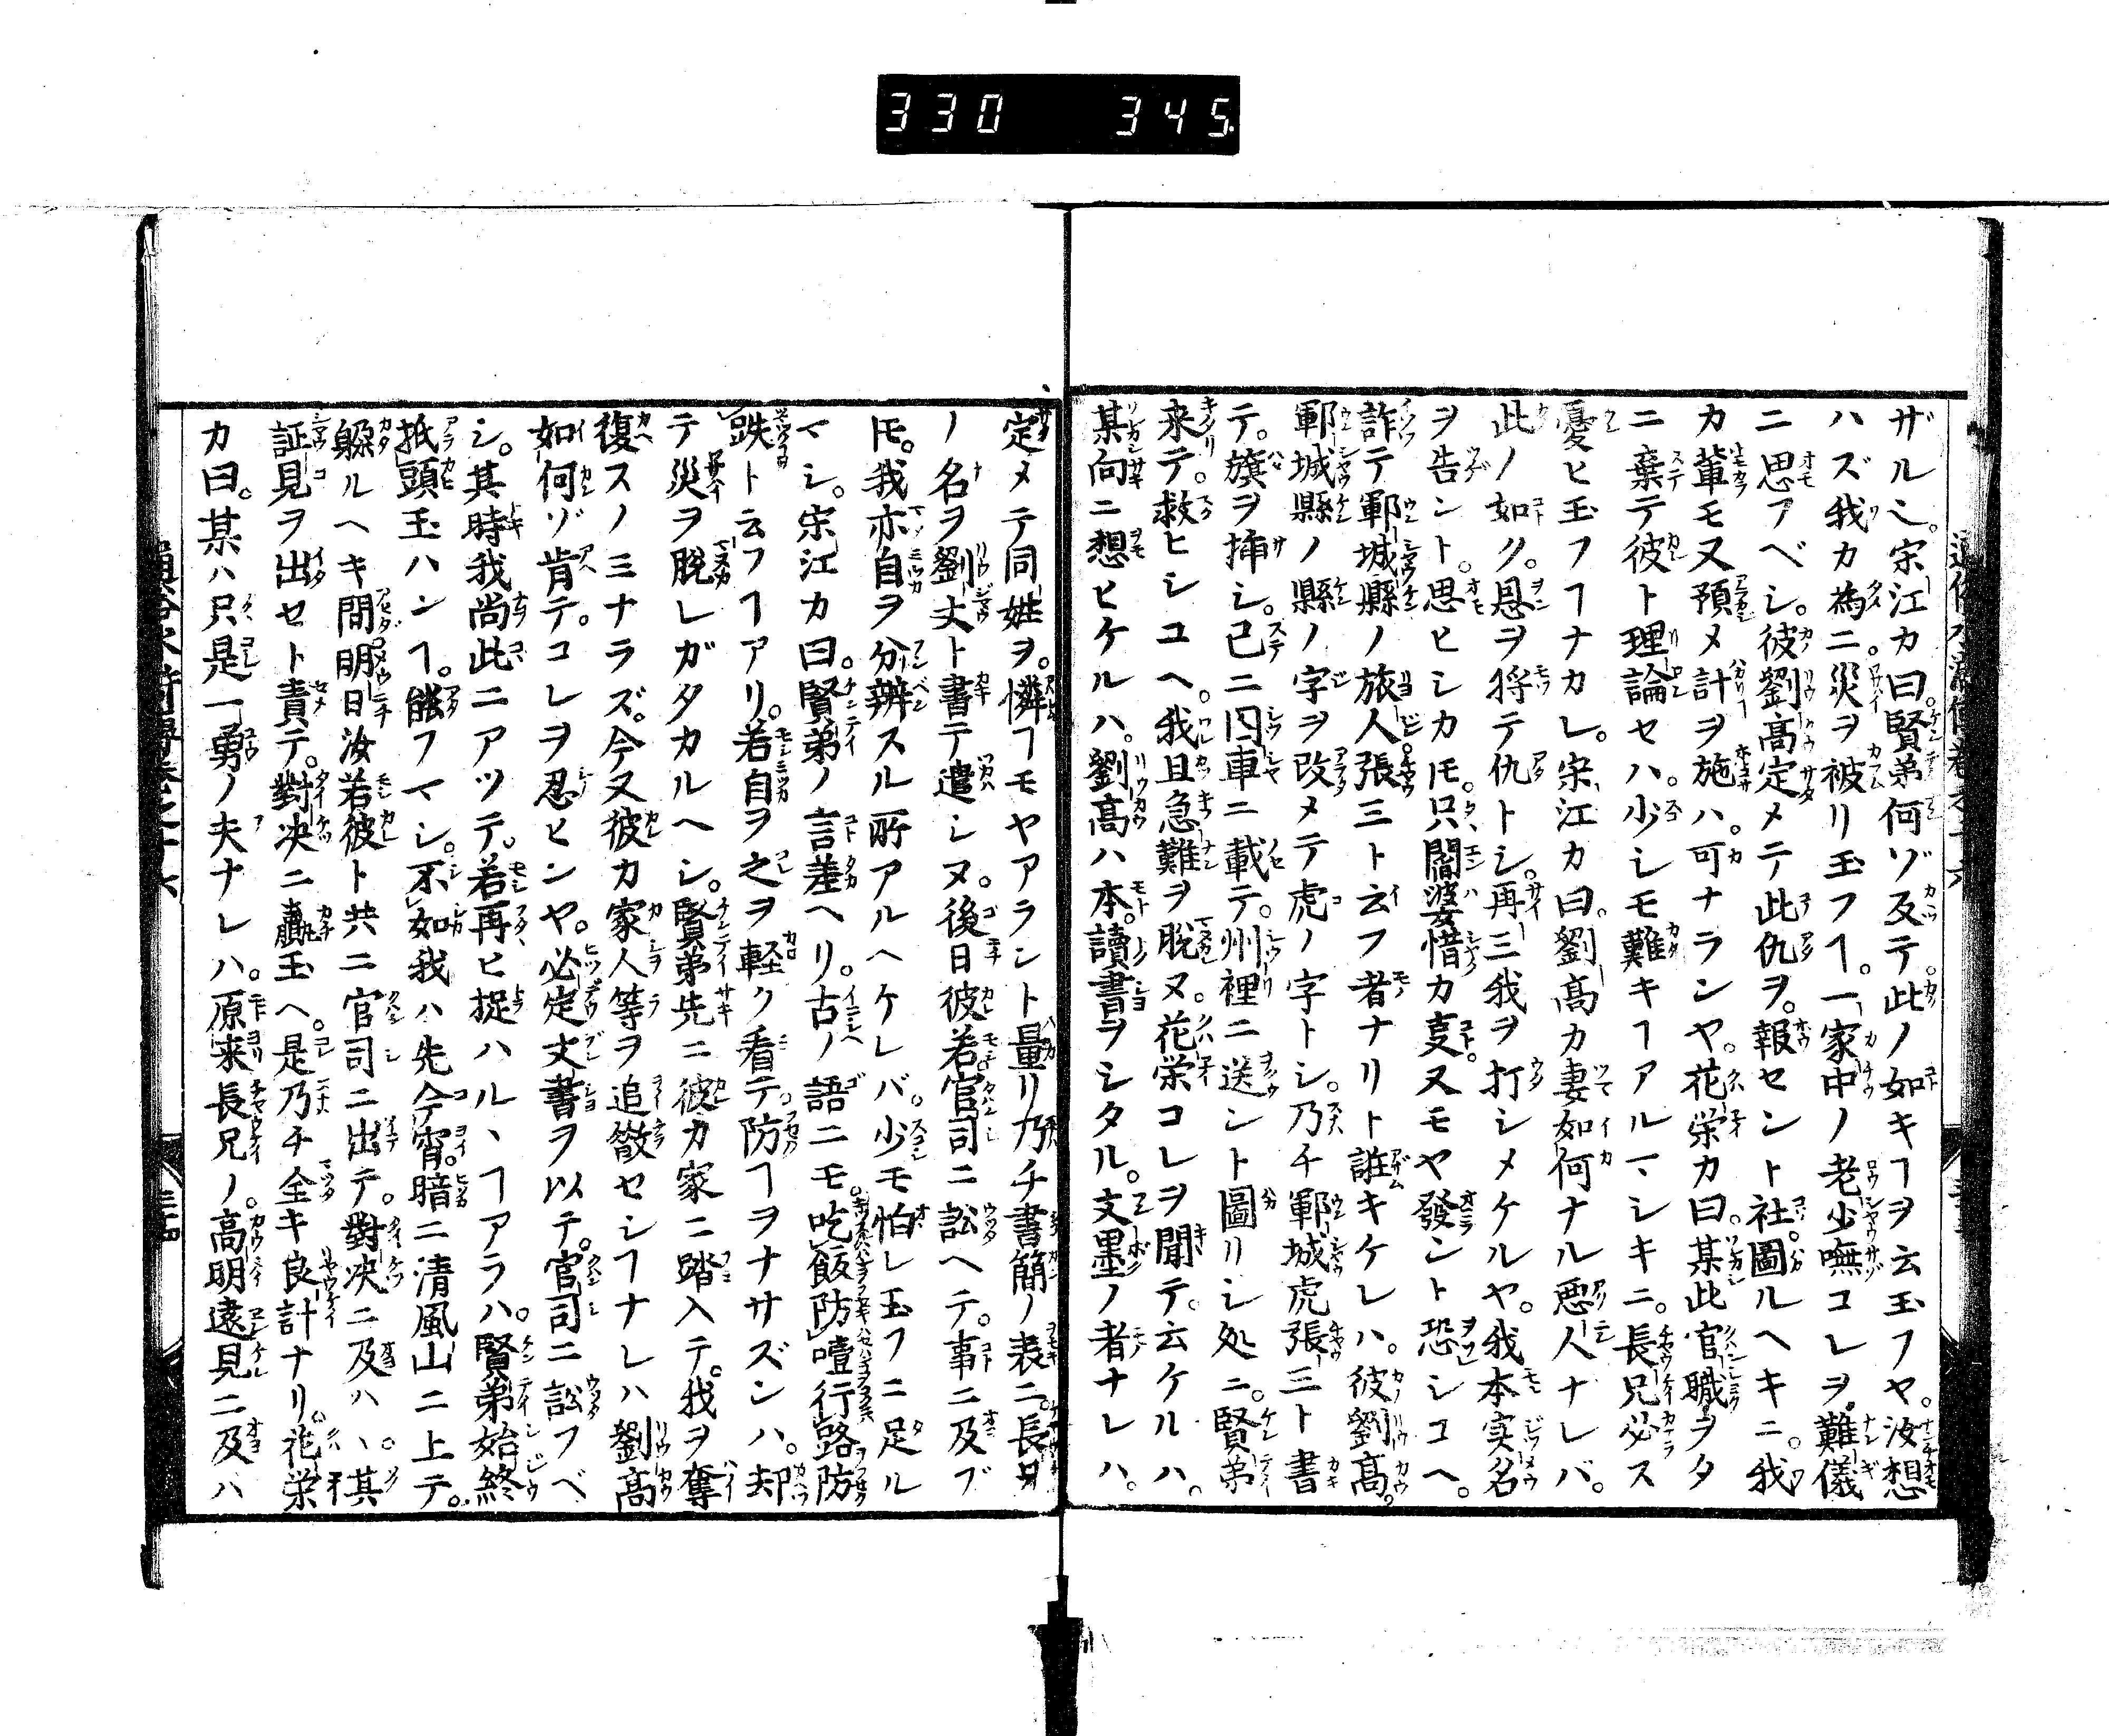 330 345
ザルシ。宋江カ曰。賢弟何ゾ及テ。此ノ如キヿヲ云玉フヤ。汝想
ハズ我カ為ニ。災ヲ被リ玉フヿ。一家中ノ老少嘸コレヲ。難儀
ニ思アベシ。彼劉髙定メテ此仇ヲ。報セント社。圖ルヘキニ。我
カ輩モ又預メ計ヲ施ハ。可ナランヤ。花栄カ曰。某此官職ヲタ
ニ棄テ彼ト理論セハ。少シモ難キヿアルマシキニ。長兄必ス
憂ヒ玉フヿナカレ。宋江カ曰。劉髙カ妻如何ナル悪人ナレバ。
此ノ如ク。恩ヲ将テ仇トシ。再三我ヲ打シメケルヤ。我本実名
ヲ告ント。思ヒシカ𪜈。只閻婆惜カ㕝。又モヤ發ント恐シユヘ。
詐テ鄆城縣ノ旅人。張三ト云フ者ナリト誑キケレハ。彼劉髙。
鄆城縣ノ縣ノ字ヲ改メテ虎ノ字トシ。乃チ鄆城虎張三ト書
テ。旗ヲ挿シ。已ニ囚車ニ載テ。州裡ニ送ント圖リシ処ニ。賢弟
来テ。救ヒシユヘ。我且急難ヲ脱ヌ。花栄コレヲ聞テ。云ケルハ。
某向ニ想ヒケルハ。劉髙ハ本。讀書ヲシタル。文墨ノ者ナレハ。
定メテ同姓ヲ。憐ヿモヤアラント量リ乃チ書簡ノ表ニ。長兄
ノ名ヲ劉丈ト書テ遣シヌ。後日彼若官司ニ訟ヘテ。事ニ及ブ
𪜈。我亦自ヲ分辨スル所アルヘケレバ。少モ怕レ玉フニ足ル
マシ。宋江カ曰。賢弟ノ言差ヘリ。古ノ語ニモ。吃飯防噎行路防
跌ト云フヿアリ。若自ヲ之ヲ軽ク看テ。防ヿヲナサズンハ。却
テ災ヲ脱レガタカルヘシ。賢弟先ニ彼カ家ニ踏入テ。我ヲ奪
復スノミナラズ。今又彼カ家人等ヲ追散セシヿナレハ劉髙
如何ゾ肯テ。コレヲ忍ヒンヤ。必定文書ヲ以テ。官司ニ訟フベ
シ。其時我尚此ニアツテ。若再ヒ捉ハルヽヿアラハ。賢弟始終
抵頭玉ハンヿ。能フマシ。不如我ハ先今宵。暗ニ清風山ニ上テ。
躱ルヘキ間。明日汝若彼ト共ニ官司ニ出テ。對决ニ及ハヽ。其
証見ヲ出セト責テ。對决ニ贏玉ヘ。是乃チ全キ良計ナリ。花栄
カ曰。某ハ只是一勇ノ夫ナレハ。原来長兄ノ。高明遠見ニ及ハ